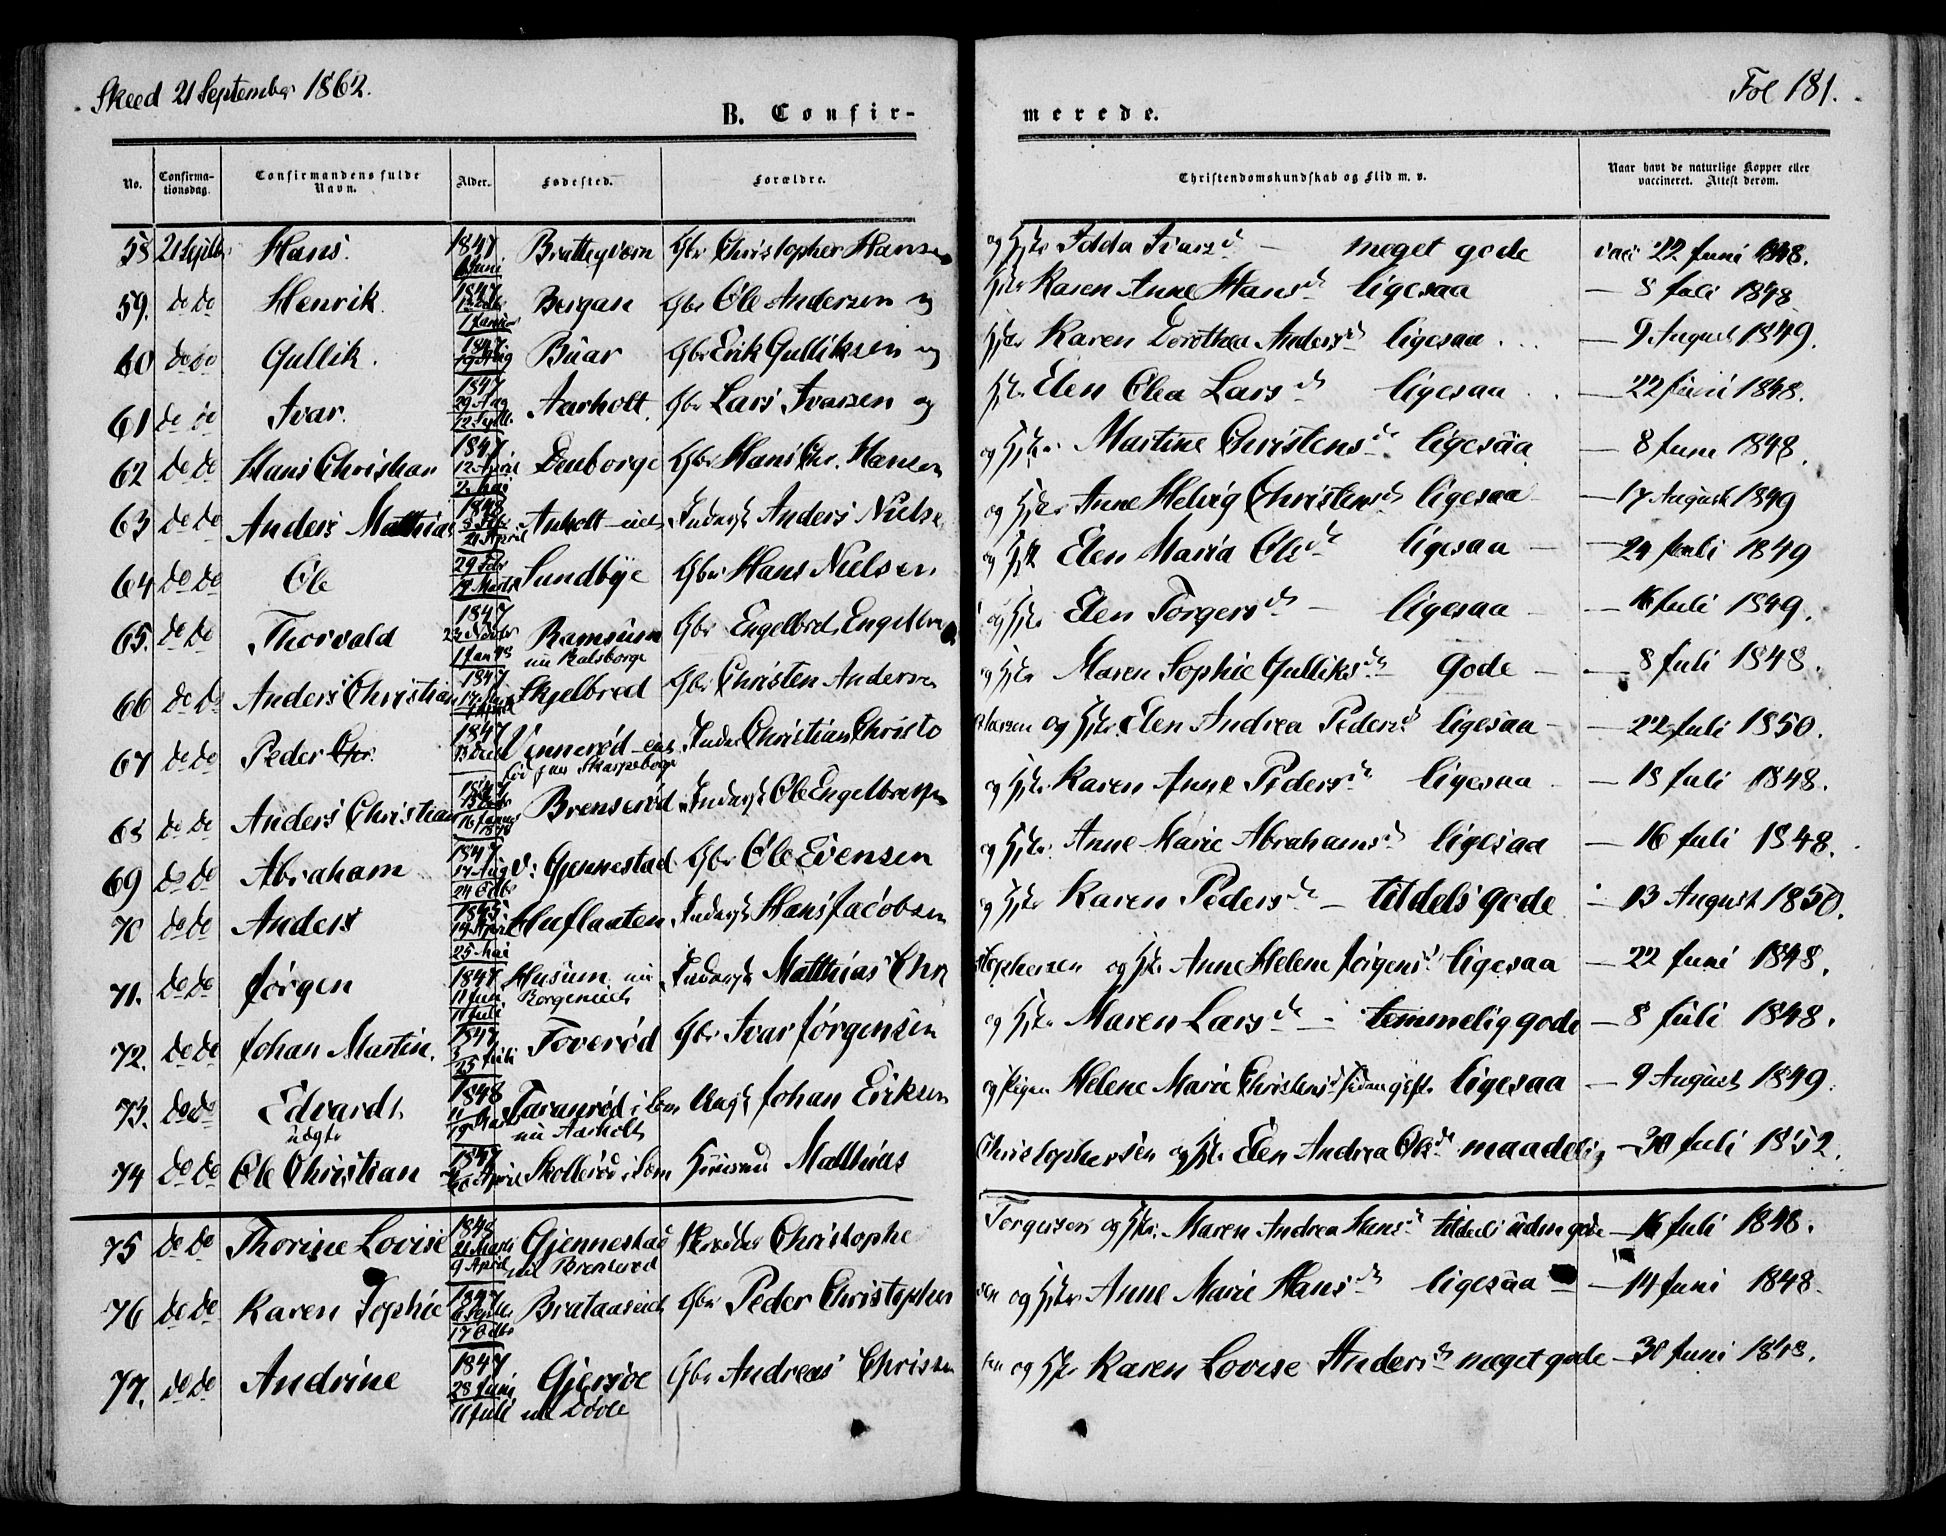 Skeed 21 September 1862.
Fol 181.
B. Confir-
merede.
No.
Confirma-
tionsdag.
Confirmandens fulde
Navn.
Alder.
Fødested.
Forældre.
Christendomskundskab og Flid m. v.
Naar havt de naturlige Kopper eller
vaccineret. Attest derom.
58 21 Septbr Hans. 1847 Gbr Christopher Hansen og Hstr Idda Ivarsd meget gode vacc 22 Juni 1848.
59. do do Henrik 1847 Bergan Gbr Ole Andersen og Hstr Karen Anne Hansd ligesaa — 8 Juli 1848
60 do do Gullik. 1847 Buar Gbr Erik Gulliksen og Hstr Karen Dorothea Andersd ligesaa — 9 August 1849.
61 do do Ivar. 1847 29 Aug 12 Septb Aarholt Gbr Lars Ivarsen og Hstr Elen Olea Larsd ligesaa — 22 Juni 1848.
62 do do Hans Christian 1847 12 April 2 Mai Gbr Hans Chr. Hansen og Hstr Martine Christensd ligesaa — 8 Juni 1848.
63 do do Anders Matthias 1848 24 April Inderst Anders Nielse og Hstr Anne Helvig Christensd ligesaa — 17 August 1849
64 do do Ole 29 Febr 19 Marts Sundbye Gbr Hans Nielsen og Hstr Elen Maria Olsd ligesaa — 24 Juli 1849
65. do do Thorvald 1847 1 Jan 48 Ramsum nu Ralsborge Gbr Engelbret Engelbre og Hstr Elen Torgersd ligesaa — 16 Juli 1849.
66 do do Anders Christian 1847 Skjelbred Gbr Christen Andersen og Hstr Maren Sophie Gulliksd Gode — 8 Juli 1848.
67 do do Peder Chr. 1847 Vennerød Inder Christian Christo
phersen og Hstr. Elen Andrea Pedersd ligesaa — 22 Juli 1850.
68 do do Anders Christian 1847 Brenserød Inderst Ole Engelbretsen og Hstr Karen Anne Pedersd ligesaa — 18 Juli 1848.
69 do do Abraham 1847 17 Aug 24 Octbr v: Gjennestad Gbr Ole Evensen og Hstr. Anne Marie Abrahamsd ligesaa — 16 Juli 1848.
70 do do Anders 1845 14 April 25 Mai Huflaaten Inderst Hans Jacobsen og Hstr Karen Pedersd — tildels gode — 13 August 1850.
71. do do Jørgen 1847 11 Juni 11 Juli Husum nu Borgeneie Inderst Matthias Chri
stophersen og Hstr Anne Helene Jørgensd ligesaa — 22 Juni 1848.
72. do do Johan Martin. 1847 Toverød Gbr Ivar Jørgensen og Hstr Maren Larsd — temmelig gode — 8 Juli 1848.
73. do do Edvard uægte 1848 Taranrød i Sem nu Aarholt Ungk Johan Eriksen og Pigen Helene Marie Christensd sidan gift. ligesaa — 9 August 1849.
74 do do Ole Christian 1847 Skollerød i Sem Huusmd Matthias
Christophersen og Hstr Elen Andrea Olsd maadelig — 30 Juli 1852.
75 do do Thorine Lovise 1848 21 Marts 9 April Gjennestad Skrædder Christophe
Torgersen og Hstr. Maren Andrea Hansd — 16 Juli 1848.
76 do do Karen Sophie 1847 6 Septbr 17 Octbr Brataaseie Gbr Peder Christopher
sen og Hstr Anne Marie Hansd ligesaa — 14 Juni 1848.
77. do do Andrine 1847 28 Juni 11 Juli Gjersøe Gbr Andreas Christen
sen og Hstr Karen Lovise Andersd meget gode — 30 Juni 1848.